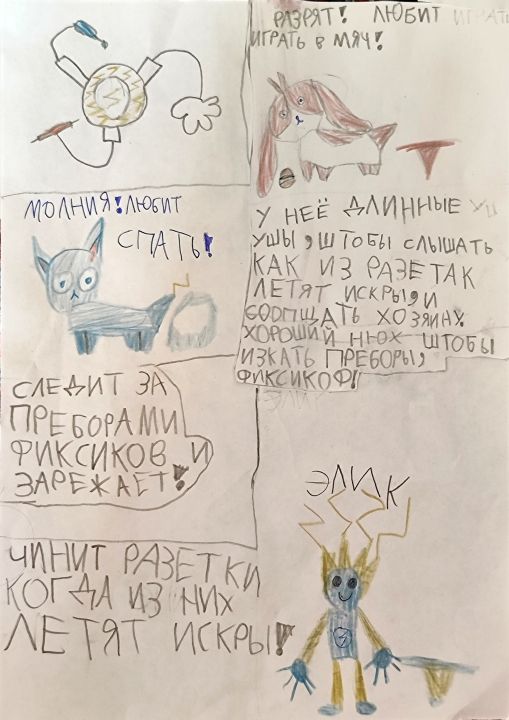 РАЗРЯТ! ЛЮБИТ ИГРАТЬ
ИГРАТЬ В МЯЧ!
МОЛНИЯ! ЛЮБИТ
СПАТЬ!
У НЕЁ ДЛИННЫЕ УШ
УШЫ, ШТОБЫ СЛЫШАТЬ
КАК ИЗ РАЗЕТАК
ЛЕТЯТ ИСКРЫ, И
СООПЩАТЬ ХОЗЯИНУ.
ХОРОШИЙ НЮХ ШТОБЫ
ИЗКАТЬ ПРЕБОРЫ,
ФИКСИКОФ!
СЛЕДИТ ЗА
ПРЕБОРАМИ
ФИКСИКОВ И
ЗАРЕЖАЕТ!
ЭЛИК
ЭЛИК
ЧИНИТ РАЗЕТКИ
КОГДА ИЗ НИХ
ЛЕТЯТ ИСКРЫ!